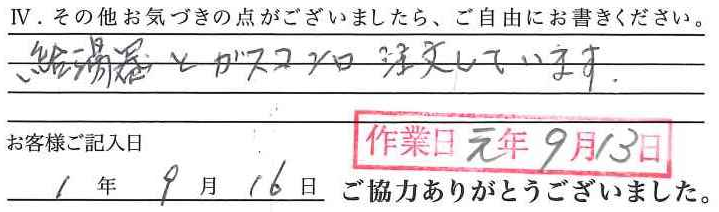 Ⅳ．その他お気づきの点がございましたら、ご自由にお書きください。
給湯器とガスコンロ注文しています.
お客様ご記入日
作業日 元年9月13日
1年9月16日 ご協力ありがとうございました。